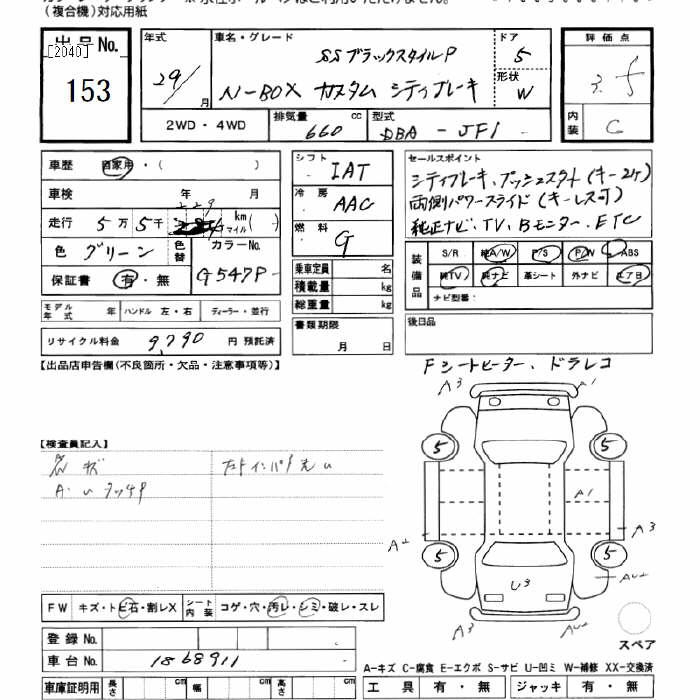 (複合機)対応用紙
出品No.
[2040]
153
年式
29/
月
車名・グレード
SSブラックスタイルP
N-BOX カスタム シティブレーキ
ドア
5
形状
W
2WD・4WD
排気量
660
cc
型式
DBA - JF1
評価点
3.5
内装
C
車歴
自家用・( )
車検
年
月
走行
5万5千
229
km
マイル
( )
色
グリーン
色替
カラーNo.
G547P
保証書
有・無
シフト
IAT
冷房
AAC
燃料
G
乗車定員
名
積載量
kg
総重量
kg
セールスポイント
シティブレーキ、プッシュスタート(キー2ケ)
両側パワースライド(キーレス可)
純正ナビ、TV、Bモニター、ETC
装備品
S/R
純A/W
P/S
P/W
ABS
純TV
純ナビ
革シート
外ナビ
エアB
ナビ型番:
モデル年式
年
ハンドル
左・右
ディーラー・並行
リサイクル料金
9,790
円
預託済
書類期限
月
日
後日品
【出品店申告欄(不良箇所・欠品・注意事項等)】
Fシートヒーター、ドラレコ
A3
A1
5
5
【検査員記入】
A・U タッチP
A1
A2
A3
5
5
U3
A3
A3
FW
キズ・トビ石・割レX
シート内装
コゲ・穴・汚レ・シミ・破レ・スレ
登録No.
車台No.
1868911
スペア
A-キズ C-腐食 E-エクボ S-サビ U-凹ミ W-補修 XX-交換済
車庫証明用
長さ
cm
幅
cm
高さ
cm
工具
有・無
ジャッキ
有・無